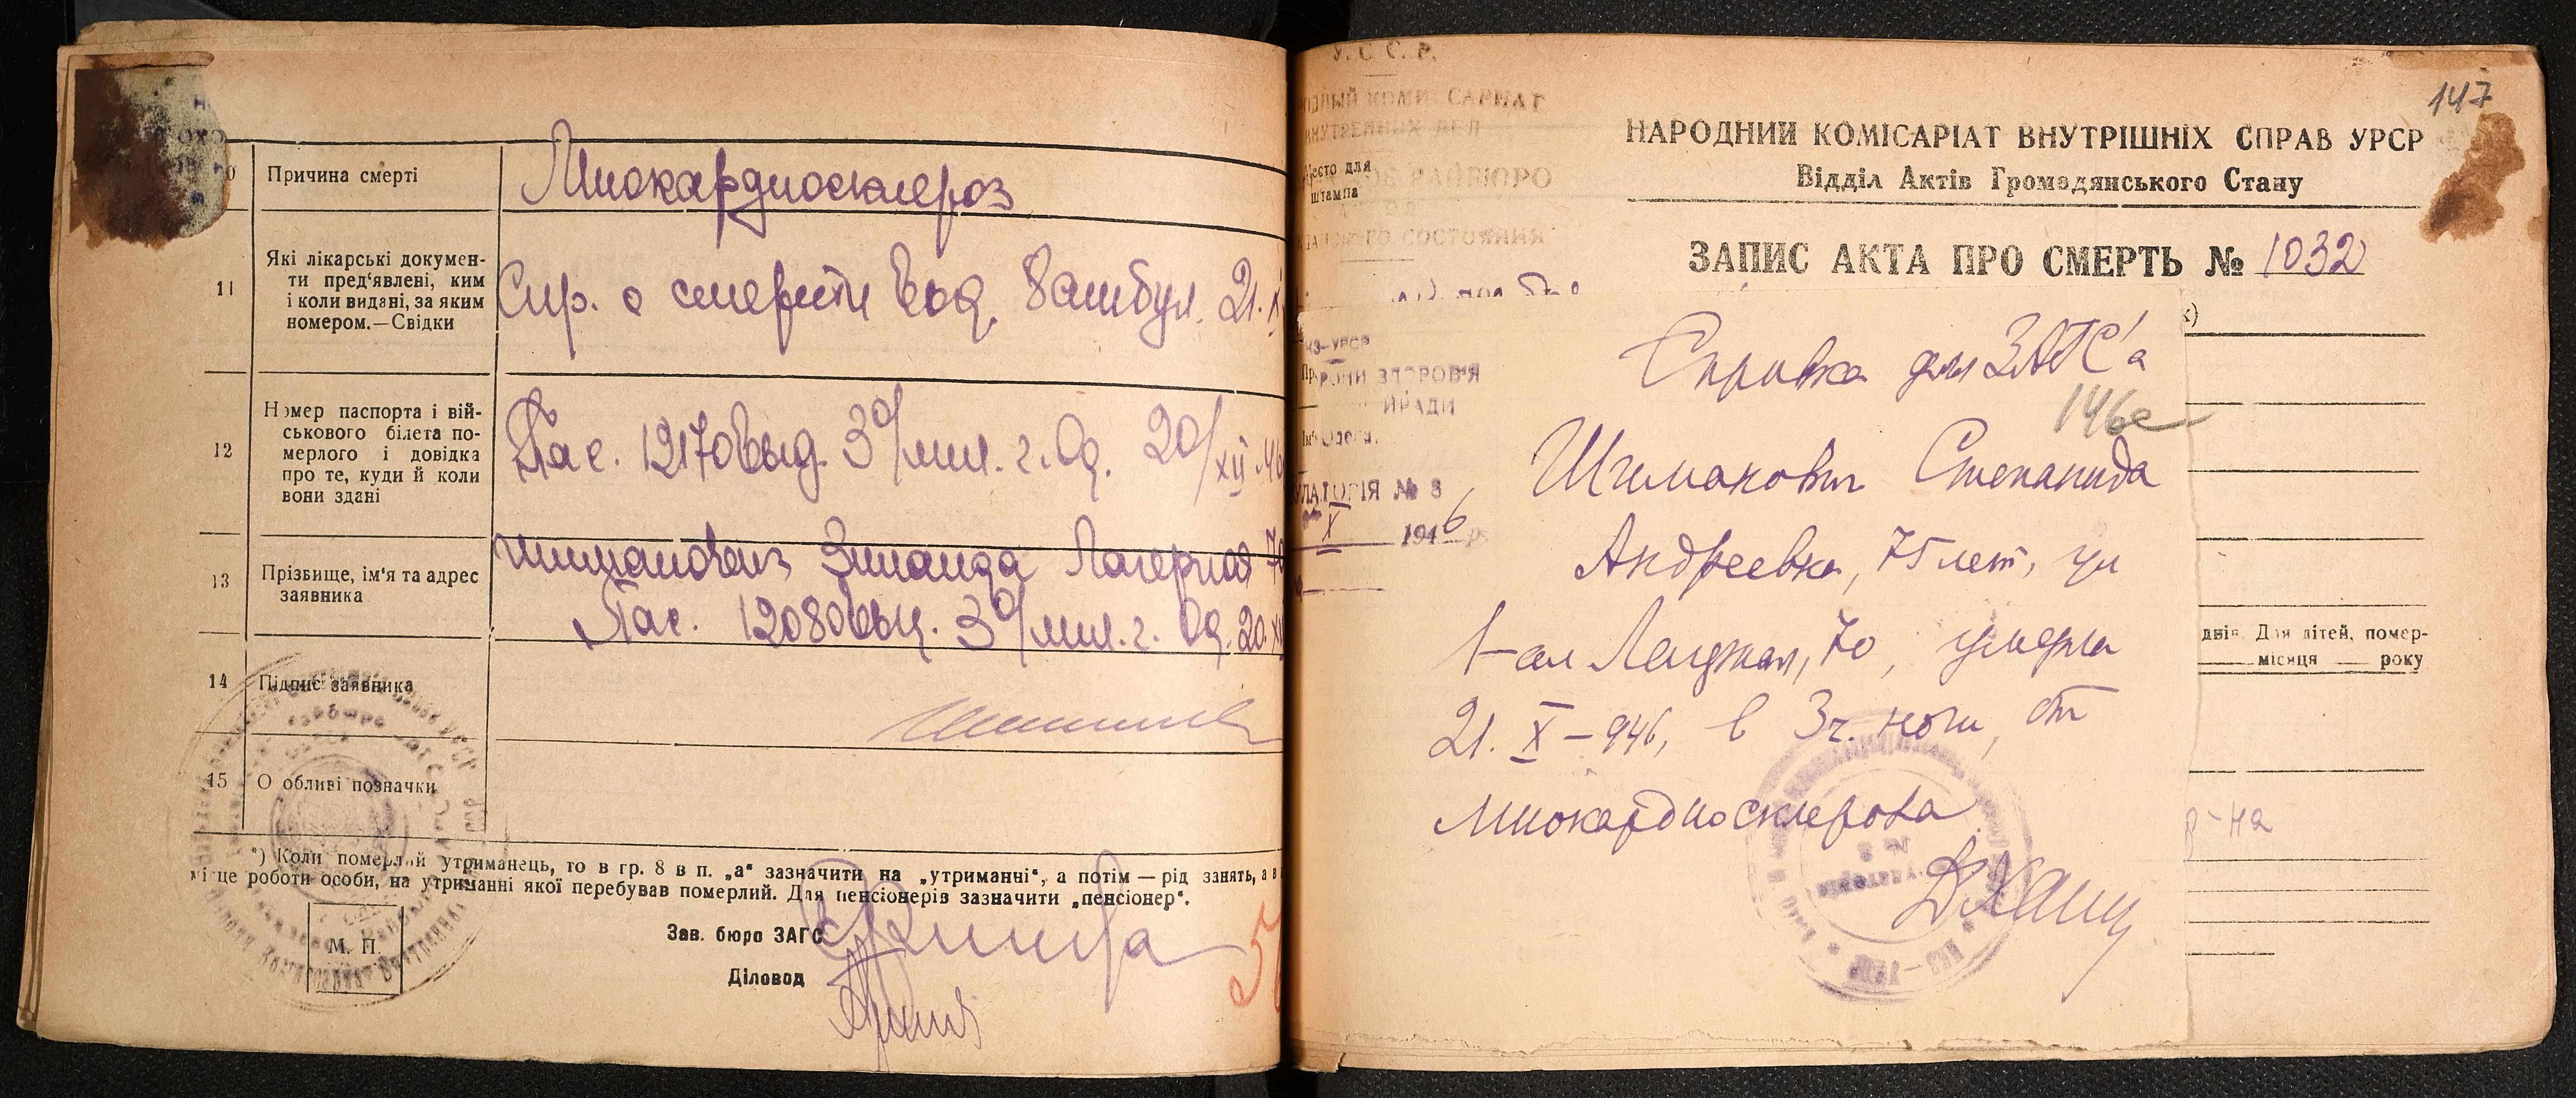 10 Причина смерті
Миокардиосклероз
11 Які лікарські докумен-
ти пред'явлені, ким
і коли видані, за яким
номером.—Свідки
Спр. о смерти выд. 8 амбул. 21.X
12 Номер паспорта і вій-
ськового білета по-
мерлого і довідка
про те, куди й коли
вони здані
Пас. 12170 выд. 3 о/мил. г. Од. 20/XII 46
13 Прізвище, ім'я та адрес
заявника
Шиманович Зинаида Лагерная 70
Пас. 12080 выд. 3 о/мил. г. Од. 20.XI
14 Підпис заявника
15 О обливі позначки
*) Коли померлий утриманець, то в гр. 8 в п. „а“ зазначити на „утриманні“, а потім — рід занять, а в
місце роботи особи, на утриманні якої перебував померлий. Для пенсіонерів зазначити „пенсіонер“.
М. П.
Зав. бюро ЗАГС
Діловод
У.С.С.Р.
НАРОДНЫЙ КОМИССАРИАТ
ВНУТРЕННИХ ДЕЛ
Место для
штампа
РАЙБЮРО
СОСТОЯНИЯ
147
НАРОДНИЙ КОМІСАРІАТ ВНУТРІШНІХ СПРАВ УРСР
Відділ Актів Громадянського Стану
ЗАПИС АКТА ПРО СМЕРТЬ № 1032
НЗ-УРСР
ЗДОРОВ'Я
ЙРАДИ
УЛАТОРІЯ № 8
X 1946
Справка для ЗАГС'а
146а
Шиманович Степанида
Андреевна, 75 лет, ул
1-ая Лагерная, 70, умерла
21. X – 946, в 3 ч. ночи, от
миокардиосклероза
днів. Для дітей, помер-
місяця року
р-на